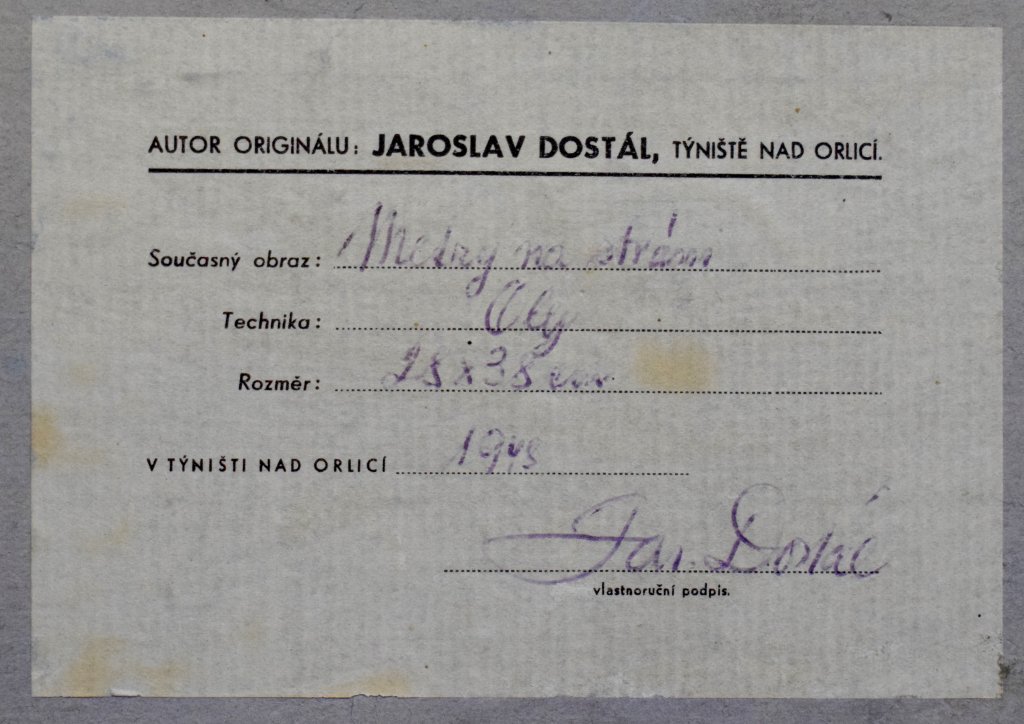 AUTOR ORIGINÁLU: JAROSLAV DOSTÁL, TÝNIŠTĚ NAD ORLICÍ.
Současný obraz: na stráni
Technika: Olej
Rozměr: 28 x 38 cm
V TÝNIŠTI NAD ORLICÍ 1948
Jar. Dostál
vlastnoruční podpis.